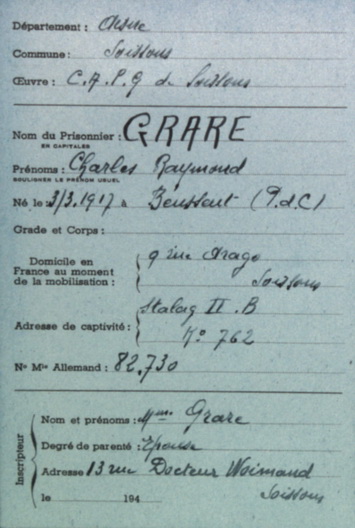 Département : Aisne
Commune : Soissons
Œuvre : C.A.P.G de Soissons
Nom du Prisonnier : GRARE
EN CAPITALES
Prénoms : Charles Raymond
SOULIGNER LE PRÉNOM USUEL
Né le 3/3.1917 à Beussent (P.d.C)
Grade et Corps :
Domicile en France au moment de la mobilisation : 9 rue Arago
Soissons
Adresse de captivité : Stalag II.B
No 762
No Mle Allemand : 82,730
Inscripteur
Nom et prénoms : Mme Grare
Degré de parenté : Epouse
Adresse 13 rue Docteur Woimand
Soissons
le 194